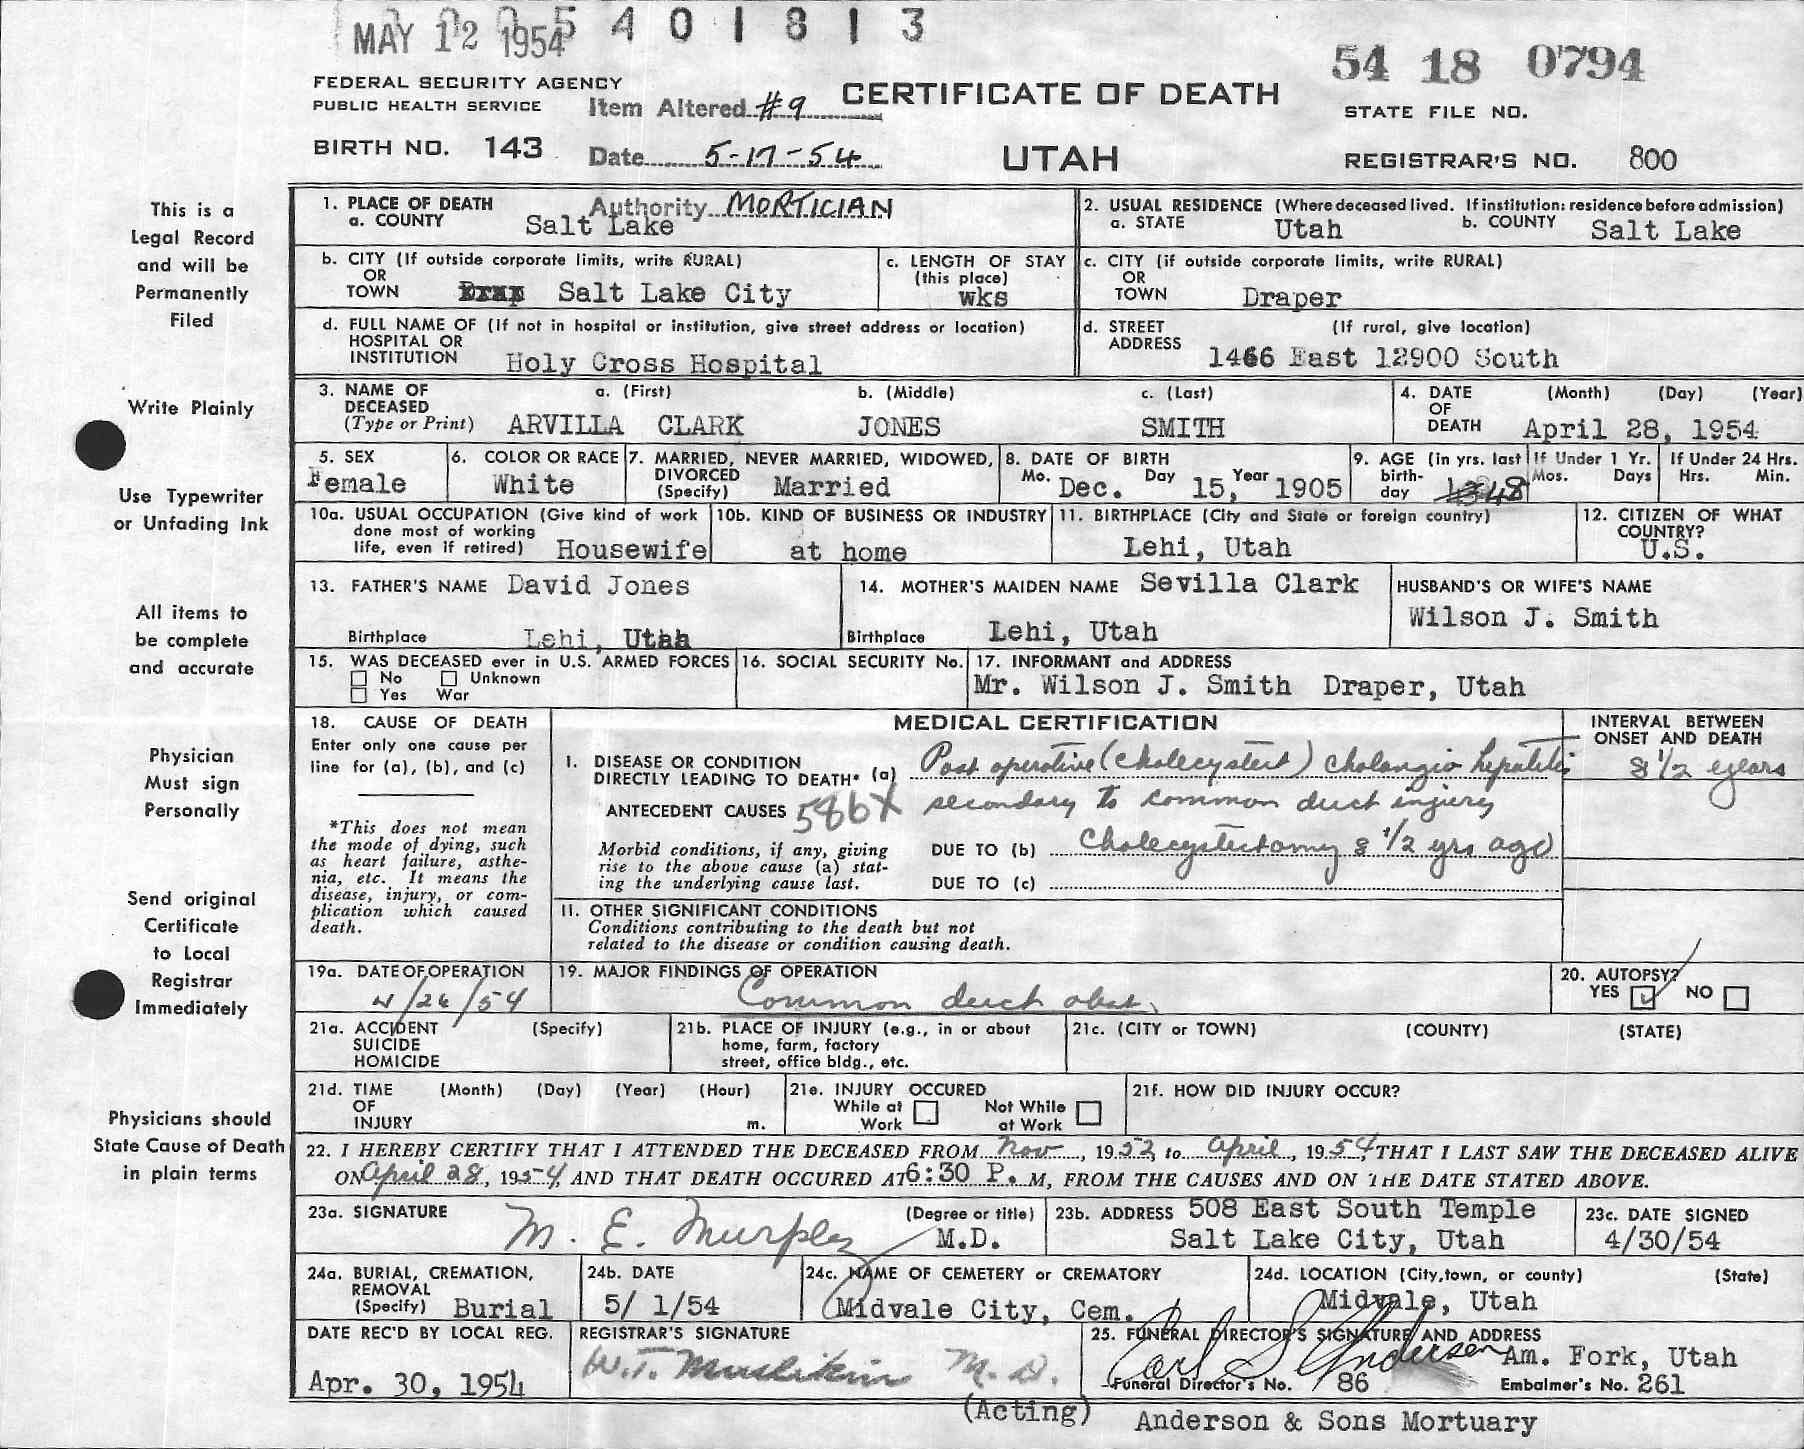 MAY 12 1954
5 4 0 1 8 1 3
54 18 0794
FEDERAL SECURITY AGENCY
PUBLIC HEALTH SERVICE
Item Altered #9
CERTIFICATE OF DEATH
STATE FILE NO.
BIRTH NO. 143
Date 5-17-54
UTAH
REGISTRAR'S NO. 800
This is a
Legal Record
and will be
Permanently
Filed
Write Plainly
Use Typewriter
or Unfading Ink
All items to
be complete
and accurate
Physician
Must sign
Personally
Send original
Certificate
to Local
Registrar
Immediately
Physicians should
State Cause of Death
in plain terms
1. PLACE OF DEATH
Authority MORTICIAN
a. COUNTY Salt Lake
2. USUAL RESIDENCE (Where deceased lived. If institution: residence before admission)
a. STATE Utah b. COUNTY Salt Lake
b. CITY (If outside corporate limits, write RURAL)
OR
TOWN Salt Lake City
c. LENGTH OF STAY
(this place)
wks
c. CITY (if outside corporate limits, write RURAL)
OR
TOWN Draper
d. FULL NAME OF (If not in hospital or institution, give street address or location)
HOSPITAL OR
INSTITUTION Holy Cross Hospital
d. STREET (If rural, give location)
ADDRESS 1466 East 12900 South
3. NAME OF DECEASED (Type or Print)
a. (First) b. (Middle) c. (Last)
ARVILLA CLARK JONES SMITH
4. DATE OF DEATH (Month) (Day) (Year)
April 28, 1954
5. SEX
Female
6. COLOR OR RACE
White
7. MARRIED, NEVER MARRIED, WIDOWED,
DIVORCED
(Specify) Married
8. DATE OF BIRTH
Mo. Dec. Day 15, Year 1905
9. AGE (in yrs. last
birth-
day 48
If Under 1 Yr.
Mos. Days
If Under 24 Hrs.
Hrs. Min.
10a. USUAL OCCUPATION (Give kind of work
done most of working
life, even if retired) Housewife
10b. KIND OF BUSINESS OR INDUSTRY
at home
11. BIRTHPLACE (City and State or foreign country)
Lehi, Utah
12. CITIZEN OF WHAT
COUNTRY?
U.S.
13. FATHER'S NAME David Jones
Birthplace Lehi, Utah
14. MOTHER'S MAIDEN NAME Sevilla Clark
Birthplace Lehi, Utah
HUSBAND'S OR WIFE'S NAME
Wilson J. Smith
15. WAS DECEASED ever in U.S. ARMED FORCES
No Unknown
Yes War
16. SOCIAL SECURITY No.
17. INFORMANT and ADDRESS
Mr. Wilson J. Smith Draper, Utah
18. CAUSE OF DEATH
Enter only one cause per
line for (a), (b), and (c)
*This does not mean
the mode of dying, such
as heart failure, asthe-
nia, etc. It means the
disease, injury, or com-
plication which caused
death.
MEDICAL CERTIFICATION
INTERVAL BETWEEN
ONSET AND DEATH
I. DISEASE OR CONDITION
DIRECTLY LEADING TO DEATH* (a) Post operative (cholecystect) cholangio hepatitis
8 1/2 years
ANTECEDENT CAUSES 586X secondary to common duct injury
Morbid conditions, if any, giving
rise to the above cause (a) stat-
ing the underlying cause last.
DUE TO (b) Cholecystectomy 8 1/2 yrs ago
DUE TO (c)
II. OTHER SIGNIFICANT CONDITIONS
Conditions contributing to the death but not
related to the disease or condition causing death.
19a. DATE OF OPERATION
4/26/54
19. MAJOR FINDINGS OF OPERATION
Common duct obst.
20. AUTOPSY?
YES NO
21a. ACCIDENT (Specify)
SUICIDE
HOMICIDE
21b. PLACE OF INJURY (e.g., in or about
home, farm, factory
street, office bldg., etc.
21c. (CITY or TOWN) (COUNTY) (STATE)
21d. TIME (Month) (Day) (Year) (Hour)
OF
INJURY m.
21e. INJURY OCCURED
While at Work
Not While at Work
21f. HOW DID INJURY OCCUR?
22. I HEREBY CERTIFY THAT I ATTENDED THE DECEASED FROM Nov, 1952 to April, 1954, THAT I LAST SAW THE DECEASED ALIVE
ON April 28, 1954, AND THAT DEATH OCCURED AT 6:30 P. M, FROM THE CAUSES AND ON THE DATE STATED ABOVE.
23a. SIGNATURE (Degree or title)
M. E. Murphy M.D.
23b. ADDRESS 508 East South Temple
Salt Lake City, Utah
23c. DATE SIGNED
4/30/54
24a. BURIAL, CREMATION,
REMOVAL
(Specify) Burial
24b. DATE
5/ 1/54
24c. NAME OF CEMETERY or CREMATORY
Midvale City, Cem.
24d. LOCATION (City, town, or county) (State)
Midvale, Utah
DATE REC'D BY LOCAL REG.
Apr. 30, 1954
REGISTRAR'S SIGNATURE
W.T. M.D.
(Acting)
25. FUNERAL DIRECTOR'S SIGNATURE AND ADDRESS
Earl S Andersen Am. Fork, Utah
Funeral Director's No. 86 Embalmer's No. 261
Anderson & Sons Mortuary